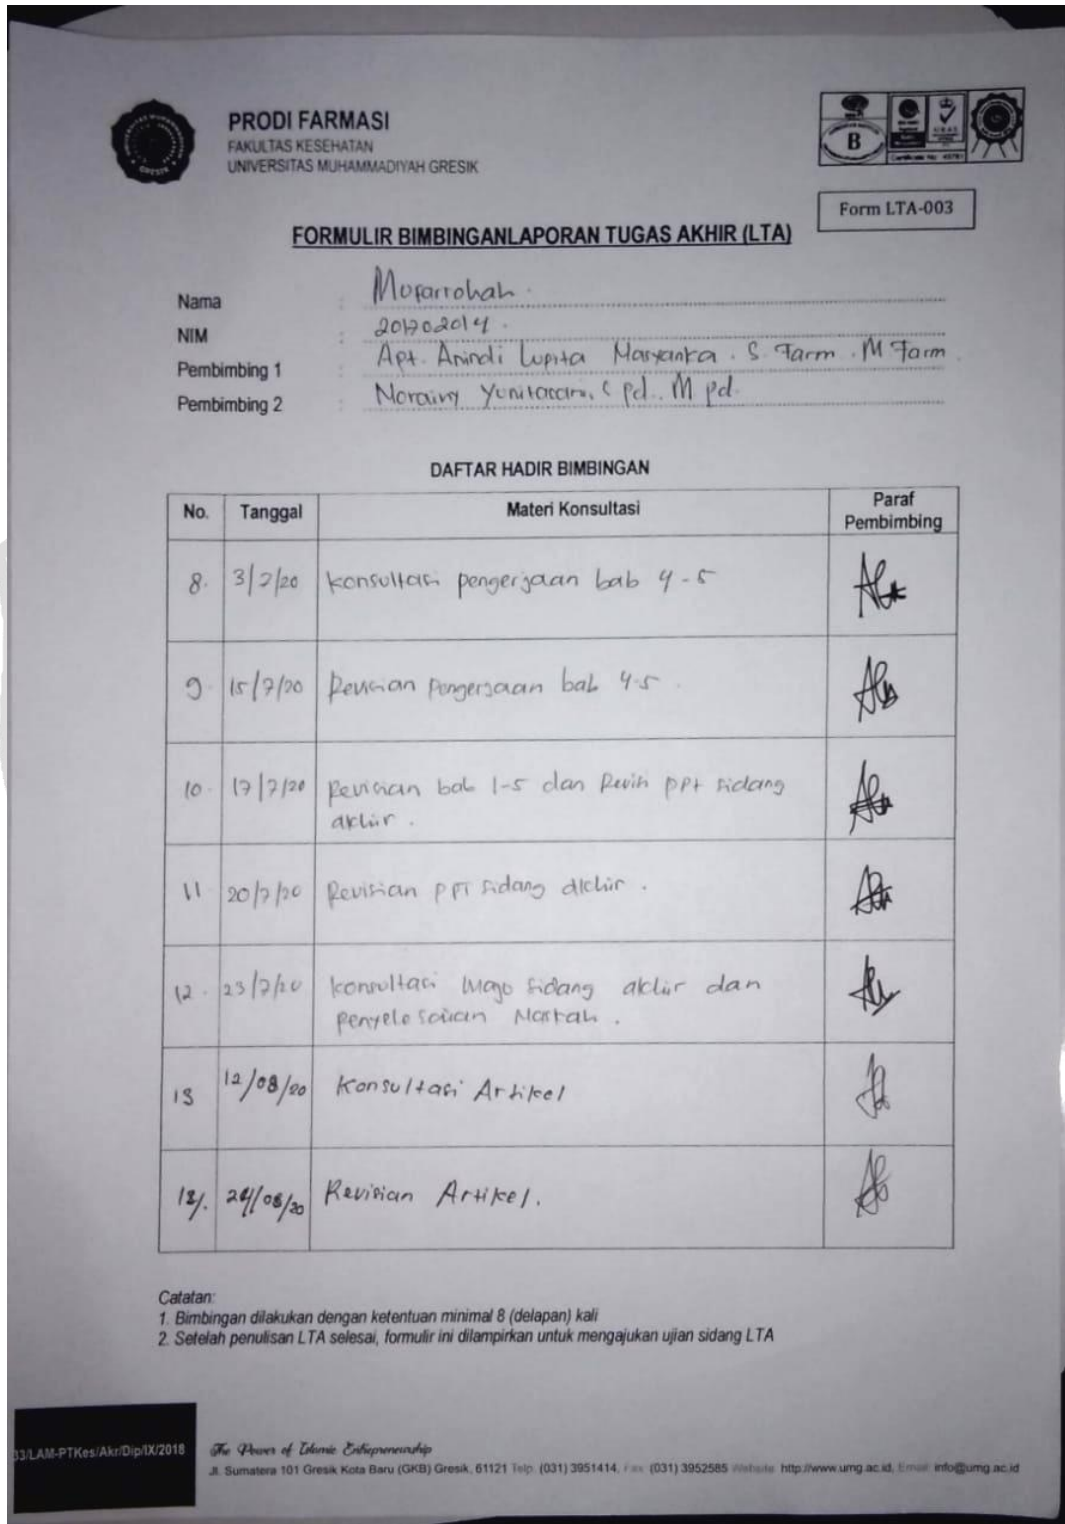 PRODI FARMASI
FAKULTAS KESEHATAN
UNIVERSITAS MUHAMMADIYAH GRESIK
B
Form LTA-003
FORMULIR BIMBINGANLAPORAN TUGAS AKHIR (LTA)
Nama : Mufarrohah.
NIM : 201702014.
Pembimbing 1 : Apt. Anindi Lupita Nasyanka. S. Farm. M Farm
Pembimbing 2 : Norainy Yunitasari, S pd.. M pd.
DAFTAR HADIR BIMBINGAN
No. Tanggal Materi Konsultasi Paraf Pembimbing
8. 3/7/20 Konsultasi pengerjaan bab 4-5
9. 15/7/20 Revisian pengerjaan bab 4-5.
10. 17/7/20 Revisian bab 1-5 dan Revisi ppt sidang
akhir.
11 20/7/20 Revisian PPT sidang akhir.
12. 23/7/20 Konsultasi sidang akhir dan
penyelesaian Naskah.
13 12/08/20 Konsultasi Artikel
24/08/20 Revisian Artikel.
Catatan:
1. Bimbingan dilakukan dengan ketentuan minimal 8 (delapan) kali
2. Setelah penulisan LTA selesai, formulir ini dilampirkan untuk mengajukan ujian sidang LTA
33/LAM-PTKes/Akr/Dip/IX/2018
The Power of Islamic Entrepreneurship
Jl. Sumatera 101 Gresik Kota Baru (GKB) Gresik, 61121 Telp. (031) 3951414, Fax. (031) 3952585 Website: http://www.umg.ac.id, Email: info@umg.ac.id